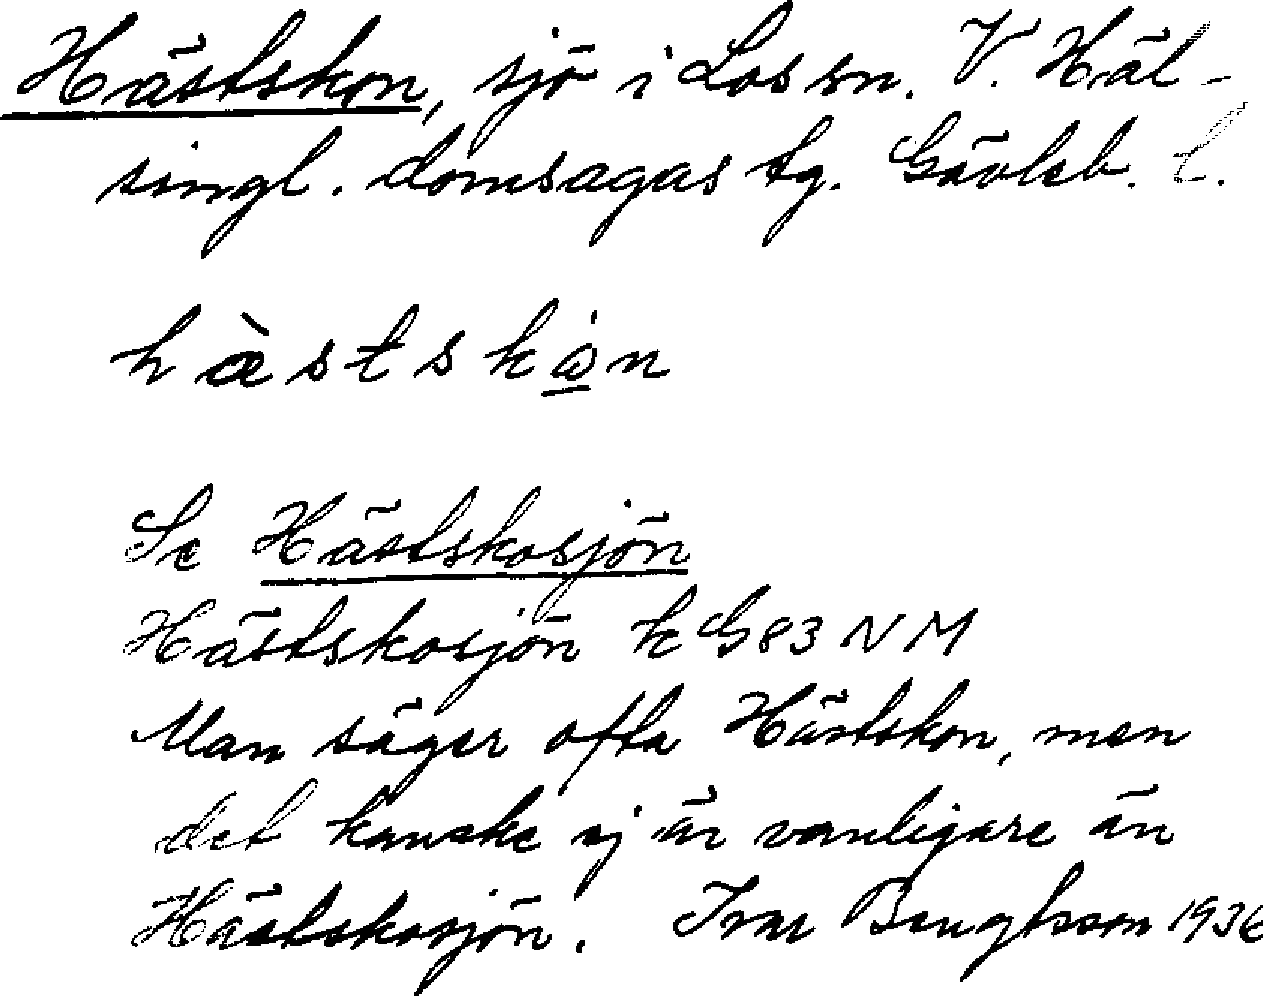 Hästskon, sjö i Los sn. V. Häl-
singl. domsagas tg. Gävleb. l.
hæ̀stskω̲n
Se Hästskosjön
Hästskosjön k G83 NM
Man säger ofta Hästskon, men
det kanske ej är vanligare än
Hästskosjön. Ivar Bengtsson 1936